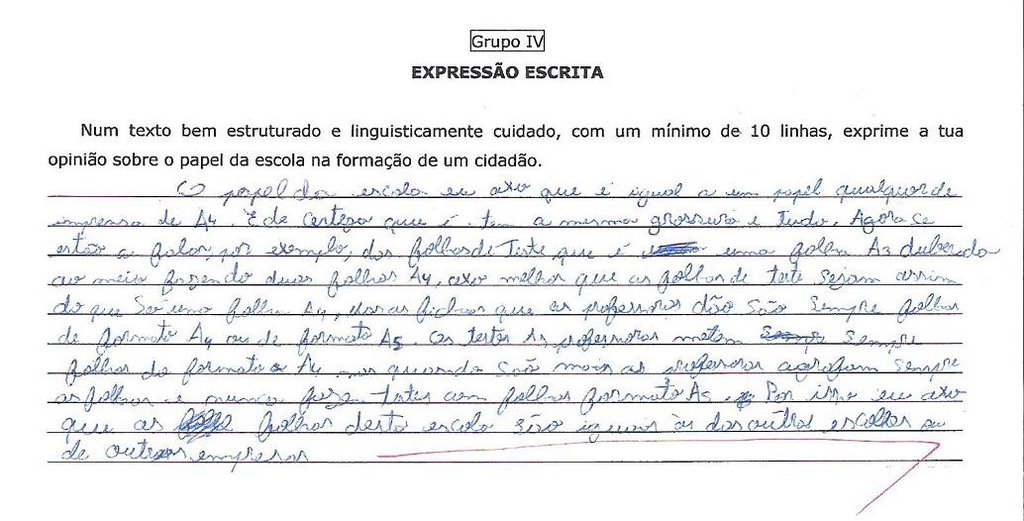 Grupo IV
EXPRESSÃO ESCRITA
Num texto bem estruturado e linguisticamente cuidado, com um mínimo de 10 linhas, exprime a tua
opinião sobre o papel da escola na formação de um cidadão.
O papel da escola eu axo que é igual a um papel qualquer de
imprensa de A4. E de certeza que é. tem a mesma grossura e tudo. Agora se
estão a falar, por exemplo, das folhas de Teste que é uma folha A3 dubrada
ao meio fazendo duas folhas A4, axo melhor que as folhas de teste sejam assim
do que Só uma folha A4, as fichas que os professores dão São Sempre folhas
de formato A4 ou de formato A5. Os testes As professoras metem Sempre
folhas do formato A4 quando São mais as professoras agrafam Sempre
as folhas e nunca fazem testes com folhas formato A5. Por isso eu axo
que as folhas desta escola São iguais às das outras escolas ou
de outras empresas